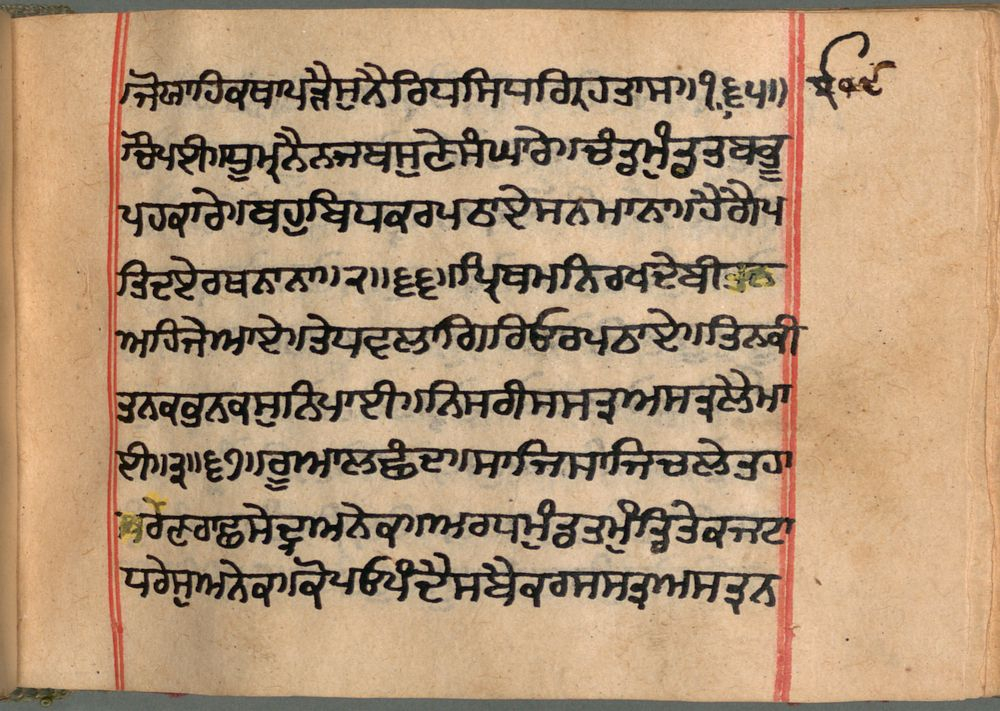 ਜੋਯਾਹਿਕਥਾਪੜੈਸੁਨੈਰਿਧਸਿਧਗਿ੍ਰਹਤਾਸ॥੧॥੬੫॥
ਚੌਪਈ॥ਧੂਮ੍ਰਨੈਨਜਬਸੁਣੇਸੰਘਾਰੇ॥ਚੰਡਮੁੰਡਤਬਭੂ
ਪਹਕਾਰੇ॥ਬਹੁਬਿਧਕਰਪਠਾਏਸਨਮਾਨਾ॥ਹੈਗੈਪ
ਤਿਦਏਰਥਨਾਨਾ॥੨॥੬੬॥ਪ੍ਰਿਥਮਨਿਰਖਦੇਬੀ
ਅਹਿਜੇਆਏ॥ਤੇਧਵਲਾਗਿਰਿਓਰਪਠਾਏ॥ਤਿਨਕੀ
ਤਨਕਭੁਨਕਸੁਨਿਪਾਈ॥ਨਿਸਰੀਸਸਤ੍ਰਅਸਤ੍ਰਲੈਮਾ
ਈ॥੩॥੬੭॥ਰੂਆਲਛੰਦ॥ਸਾਜਿਸਾਜਿਚਲੇਤਹਾ
ਰਣਰਾਛਸੇਂਦ੍ਰਅਨੇਕ॥ਅਰਧਮੁੰਡਤਮੁੰਡਿਤੇਕਜਟਾ
ਧਰੇਸੁਅਨੇਕ॥ਕੋਪਓਪੰਦੈਸਬੈਕਰਸਸਤ੍ਰਅਸਤ੍ਰਨ